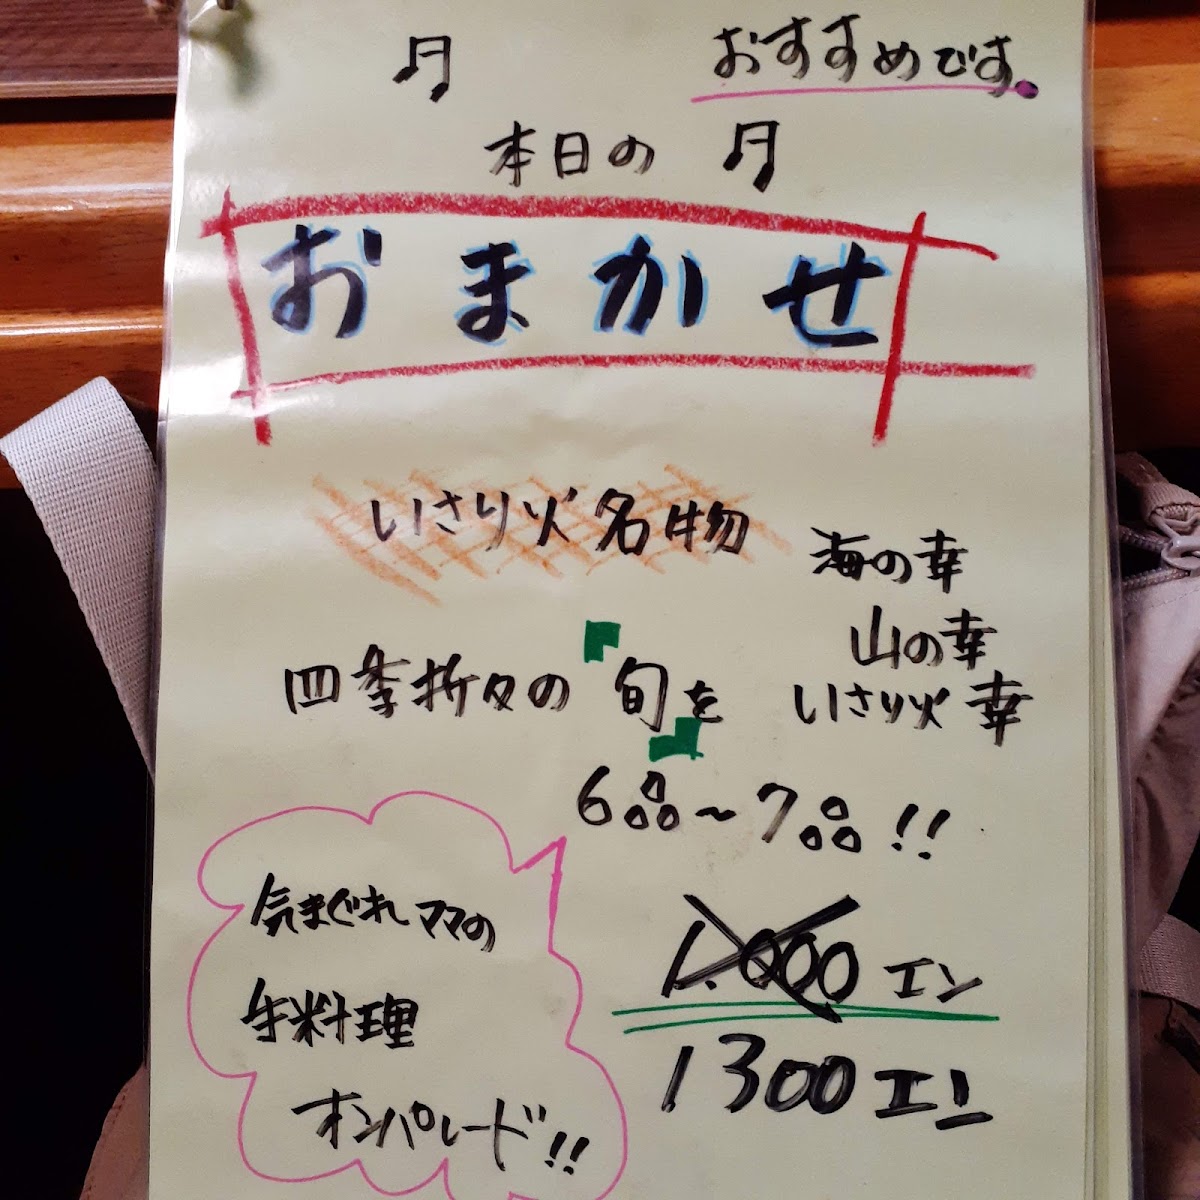 おすすめです。
本日の
おまかせ
いさり火名物
海の幸
山の幸
いさり火幸
四季折々の「旬」を
6品〜7品!!
気まぐれママの
手料理
オンパレード!!
1.000エン
1300エン